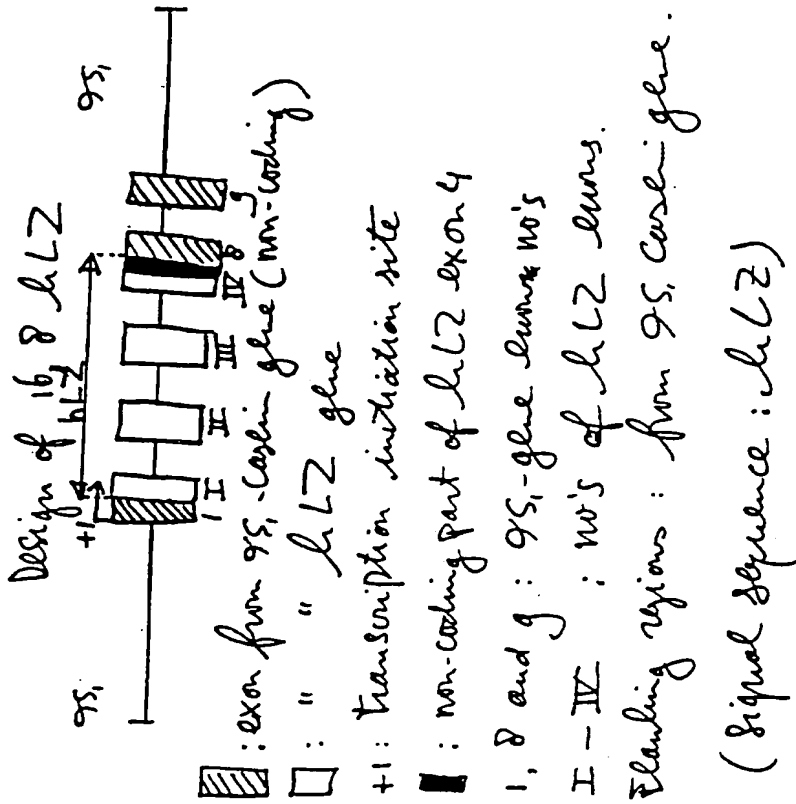 Design of 16, 8 hLZ
hLZ
αS₁ +1 αS₁
1 I II III IV 8 9
: exon from αS₁-casein gene (non-coding)
: " " hLZ gene
+1: transcription initiation site
: non-coding part of hLZ exon 4
1, 8 and 9 : αS₁-gene exons no's
I - IV : no's of hLZ exons.
Flanking regions : from αS₁ casein gene.
(signal sequence : hLZ)